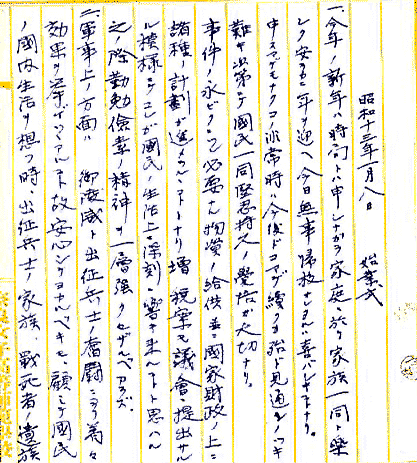 昭和十三年一月八日　始業式
一、今年ノ新年ハ時局トハ申シナガラ家庭ニ於テ家族一同ト樂
シク安ラカニ年ヲ迎ヘ今日無事帰校セシヿハ喜バシキヿナリ。
申スマデモナクコノ非常時ハ今後ドコマデ續クカ殆ド見通シノツキ
難キ次第デ國民一同堅忍持久ノ覺悟ガ大切ナリ。
事件ノ永ビクニツレ必要ナル物資ノ給供並ニ國家財政ノ上ニ
諸種ノ計劃ガ進メラルルヿトナリ増税案モ議會ニ提出サル
ル模様ニテコレガ國民ノ生活上ニ深刻ニ響キ来ルヿト思ハル
之ノ際勤勉儉素ノ精神ヲ一層強クセザルベカラズ。
二、軍事上ノ方面ハ　御稜威ト出征兵士ノ奮闘ニヨリ着々
効果ヲ奏シツツアルヿ故安心シテヨカルベキモ、顧ミテ國民
ノ國内生活ヲ想フ時、出征兵士ノ家族、戰死者ノ遺族